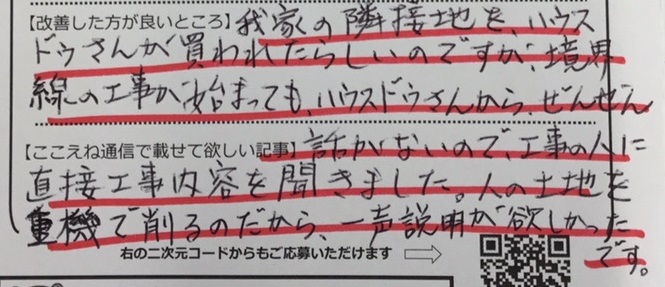 【改善した方が良いところ】我家の隣接地を、ハウス
ドゥさんが買われたらしいのですが、境界
線の工事が始まっても、ハウスドゥさんから、ぜんぜん
【ここえね通信で載せて欲しい記事】話がないので、工事の人に
直接工事内容を聞きました。人の土地を
重機で削るのだから、一声説明が欲しかった
です。
右の二次元コードからもご応募いただけます